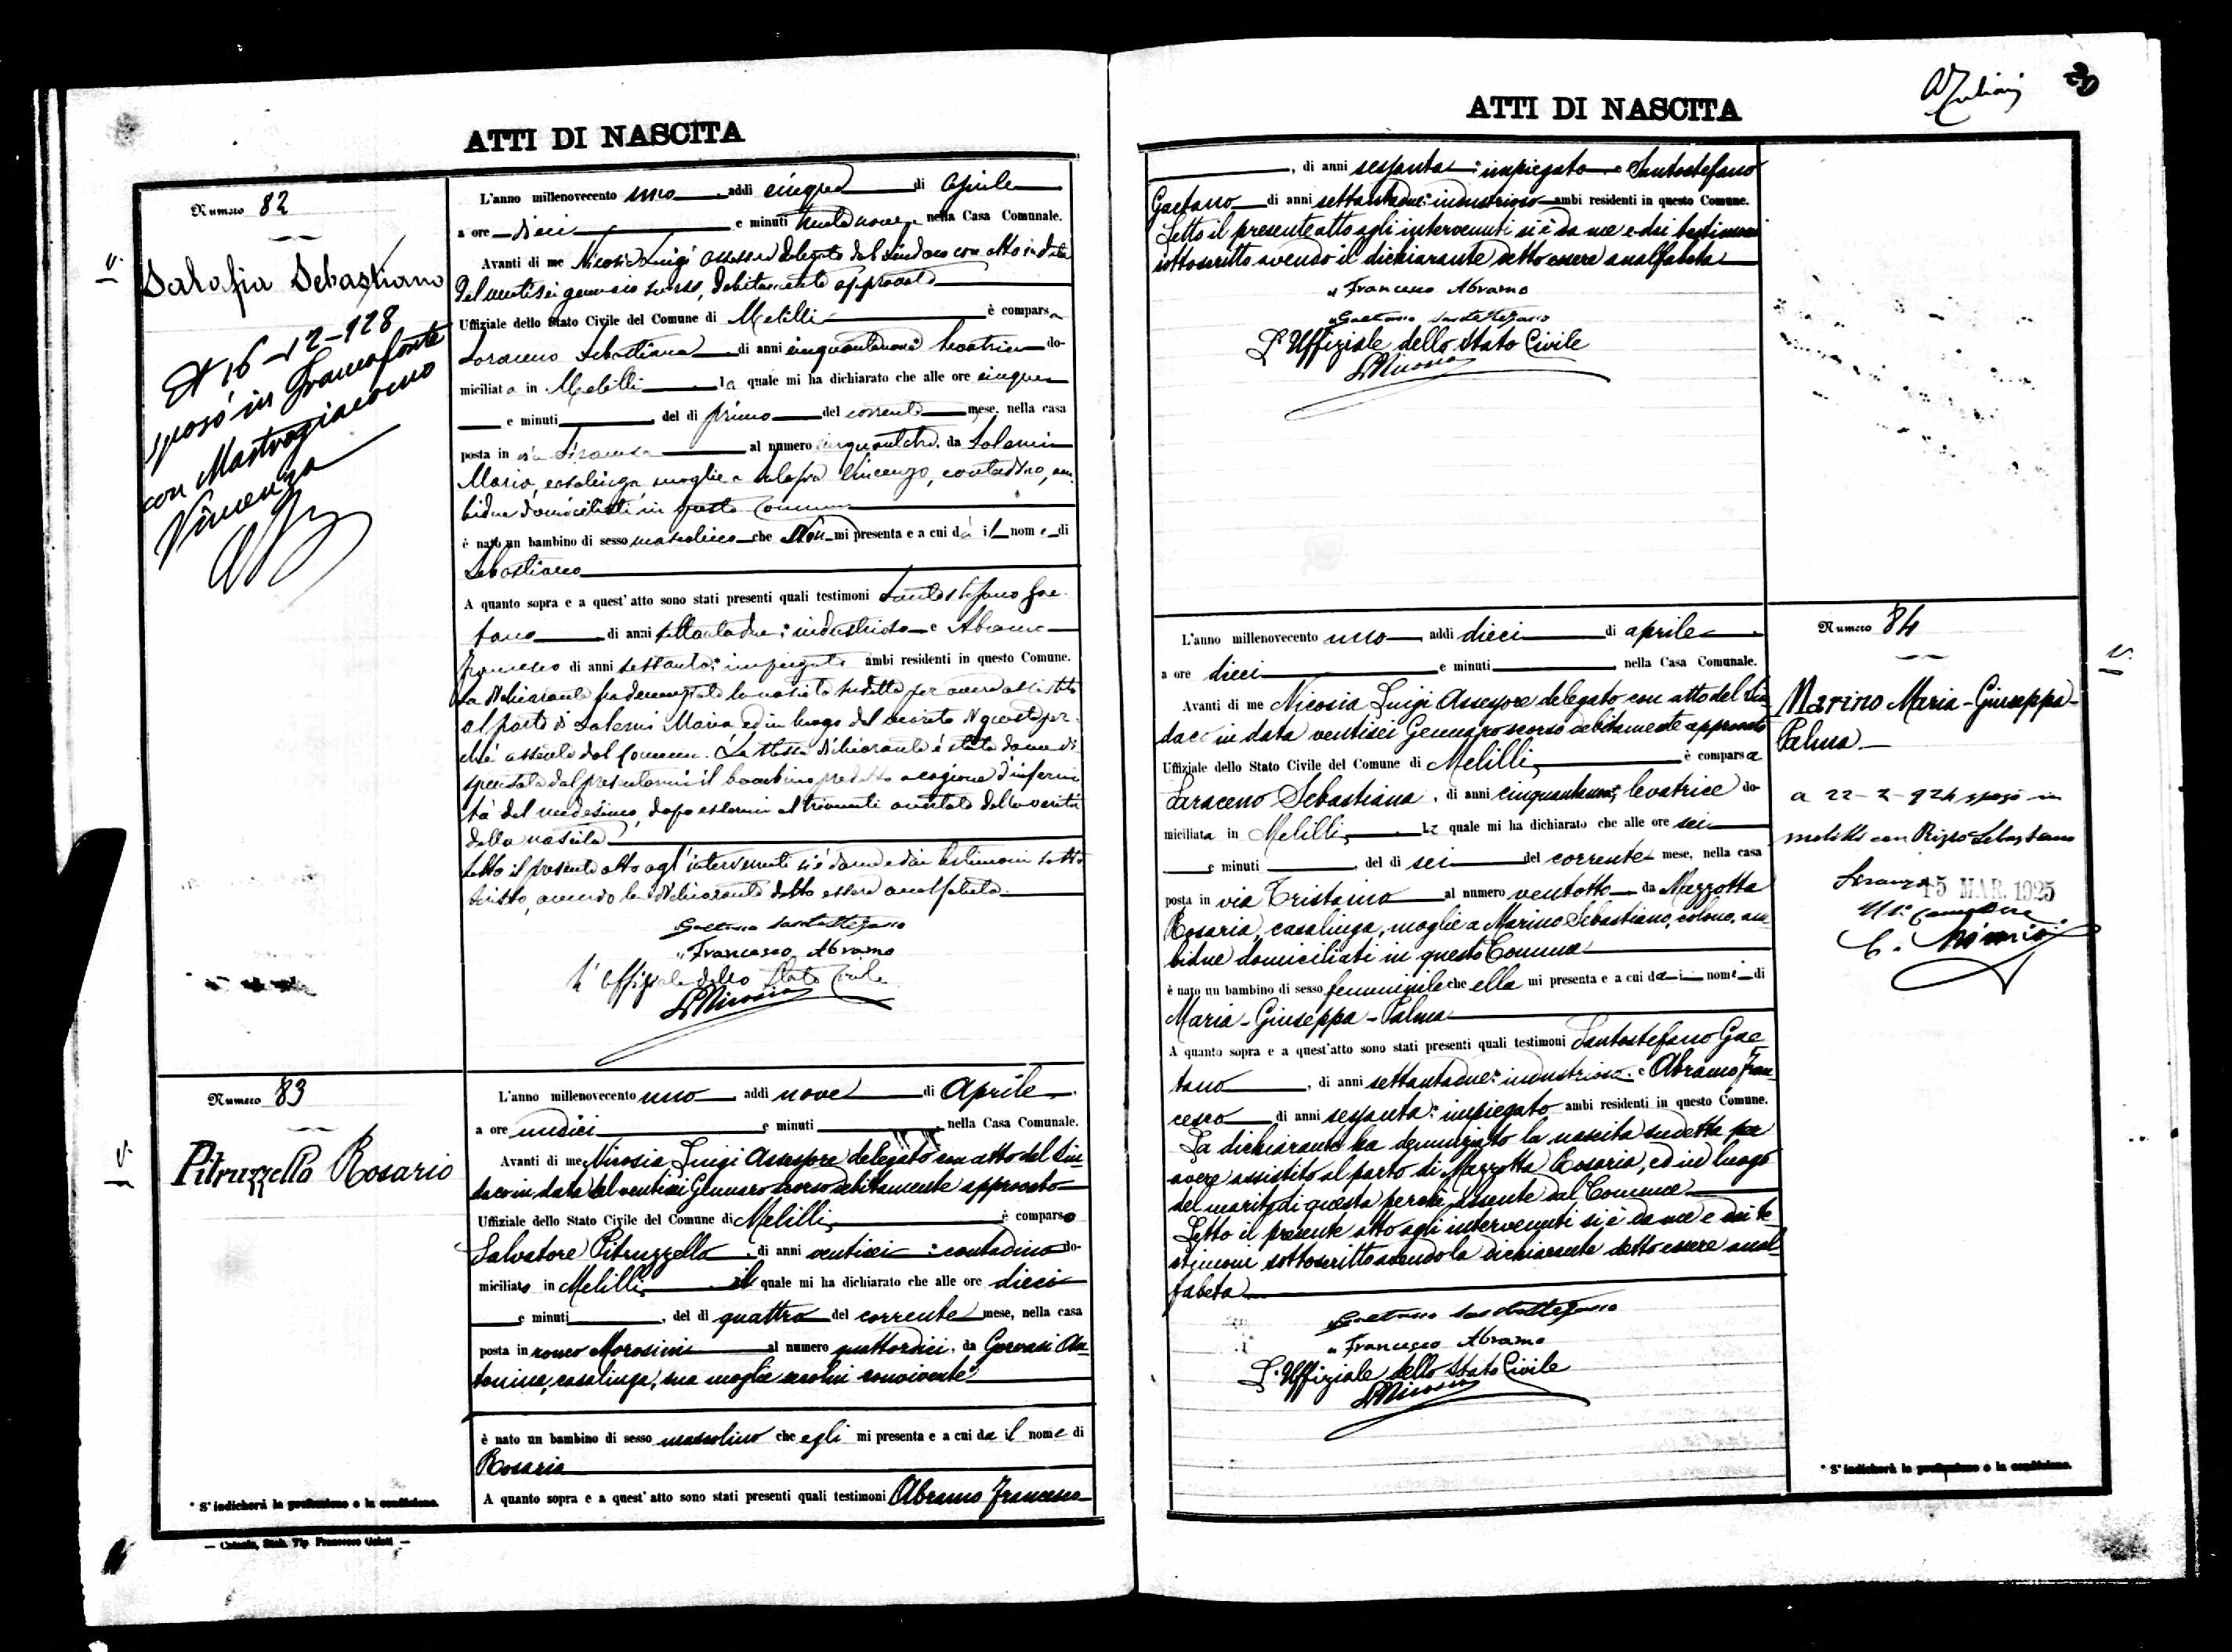 ATTI DI NASCITA
Numero 82
Salafia Sebastiano
A 16-12-928
sposò in Francofonte
con Mastrogiacomo
Vincenza
L'anno millenovecento uno addì cinque di Aprile
a ore dieci e minuti trentanove, nella Casa Comunale.
Avanti di me Nicosia Luigi assessore delegato dal Sindaco con atto in data
del ventisei gennaio scorso, debitamente approvato
Uffiziale dello Stato Civile del Comune di Melilli è comparsa
Saraceno Sebastiana di anni cinquantanove levatrice do-
miciliata in Melilli la quale mi ha dichiarato che alle ore cinque
e minuti del dì primo del corrente mese, nella casa
posta in via Siracusa al numero da Salemi
Maria, casalinga moglie a Salafia Vincenzo, contadino, am-
bidue domiciliati in questo Comune
è nato un bambino di sesso mascolino che Non mi presenta e a cui dà il nome di
Sebastiano
A quanto sopra e a quest'atto sono stati presenti quali testimoni Santostefano Gae-
tano di anni settantadue: industrioso e Abramo
Francesco di anni sessanta: impiegato ambi residenti in questo Comune.
La dichiarante ha denunziato la nascita sudetta per avere assistito
al parto di Salemi Maria ed in luogo del marito di questa per-
chè assente dal Comune. La stessa dichiarante è stata da me di-
spensata dal presentarmi il bambino predetto a cagione d'infermi-
tà del medesimo, dopo essermi altrimenti accertato della verità
della nascita
Letto il presente atto agl'intervenuti si è da me e dai testimoni sotto-
scritto, avendo la dichiarante detto essere analfabeta.
Gaetano Santostefano
" Francesco Abramo
L'Uffiziale dello Stato Civile
L Nicosia
Numero 83
Pitruzzello Rosario
L'anno millenovecento uno addì nove di Aprile
a ore undici e minuti, nella Casa Comunale.
Avanti di me Nicosia Luigi Assessore delegato con atto del Sin-
daco in data del ventisei Gennaro scorso debitamente approvato
Uffiziale dello Stato Civile del Comune di Melilli è comparso
Salvatore Pitruzzello, di anni ventisei: contadino do-
miciliato in Melilli il quale mi ha dichiarato che alle ore dieci
e minuti, del dì quattro del corrente mese, nella casa
posta in ronco Morosini al numero quattordici, da Gervasi An-
tonina, casalinga, sua moglie seco lui convivente
è nato un bambino di sesso mascolino che egli mi presenta e a cui da il nome di
Rosario
A quanto sopra e a quest'atto sono stati presenti quali testimoni Abramo Francesco
* S'indicherà la professione o la condizione.
— Catania, Stab. Tip. Francesco Galati —
ATTI DI NASCITA
, di anni sessanta: impiegato e Santostefano
Gaetano di anni settantadue: industrioso ambi residenti in questo Comune.
Letto il presente atto agli intervenuti si è da me e dai testimoni
sottoscritto avendo il dichiarante detto essere analfabeta
" Francesco Abramo
" Gaetano Santostefano
L'Uffiziale dello Stato Civile
L Nicosia
L'anno millenovecento uno addì dieci di aprile
a ore dieci e minuti, nella Casa Comunale.
Avanti di me Nicosia Luigi Assessore delegato con atto del Sin-
daco in data ventisei Gennaro scorso debitamente approvato
Uffiziale dello Stato Civile del Comune di Melilli è comparsa
Saraceno Sebastiana, di anni cinquantanove levatrice do-
miciliata in Melilli La quale mi ha dichiarato che alle ore sei
e minuti del dì sei del corrente mese, nella casa
posta in via Tristaino al numero ventotto da Mazzotta
Rosaria, casalinga, moglie a Marino Sebastiano, colono, am-
bidue domiciliati in questo Comune
è nato un bambino di sesso femminile che ella mi presenta e a cui da i nomi di
Maria-Giuseppa-Palma
A quanto sopra e a quest'atto sono stati presenti quali testimoni Santostefano Gae-
tano, di anni settantadue: industrioso e Abramo Fran-
cesco di anni sessanta: impiegato ambi residenti in questo Comune.
La dichiarante ha denunziato la nascita sudetta per
avere assistito al parto di Mazzotta Rosaria, ed in luogo
del marito di questa perchè assente dal Comune
Letto il presente atto agli intervenuti si è da me e dai te-
stimoni sottoscritto avendo la dichiarante detto essere anal-
fabeta
Gaetano Santostefano
" Francesco Abramo
L'Uffiziale dello Stato Civile
L Nicosia
Numero 84
Marino Maria-Giuseppa-
Palma
a 22-2-924 sposò in
Melilli con Rizzo Sebastiano
15 MAR. 1925
* S'indicherà la professione o la condizione.